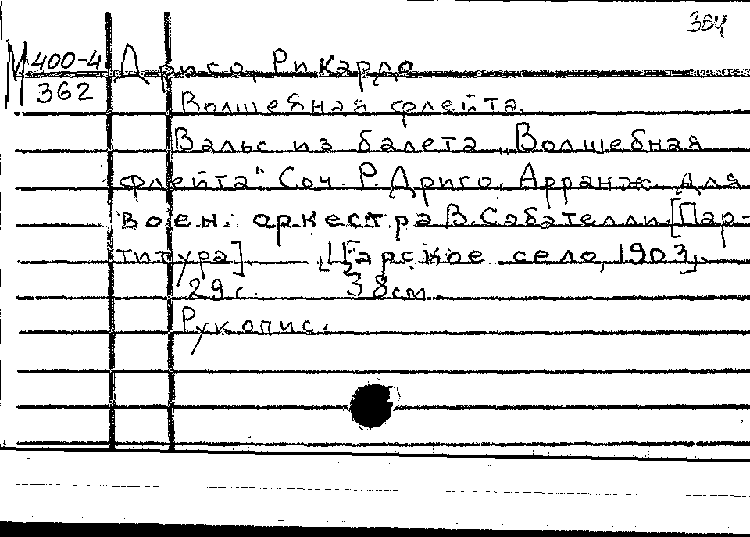 364
М 400-4 Дриго, Рикардо
362
Волшебная флейта.
Вальс из балета „Волшебная
флейта". Соч. Р. Дриго. Арранж. для
воен. оркестра В. Сабателли. [Пар-
титура]. [Царское село, 1903].
29 с. 38 см.
Рукопис.